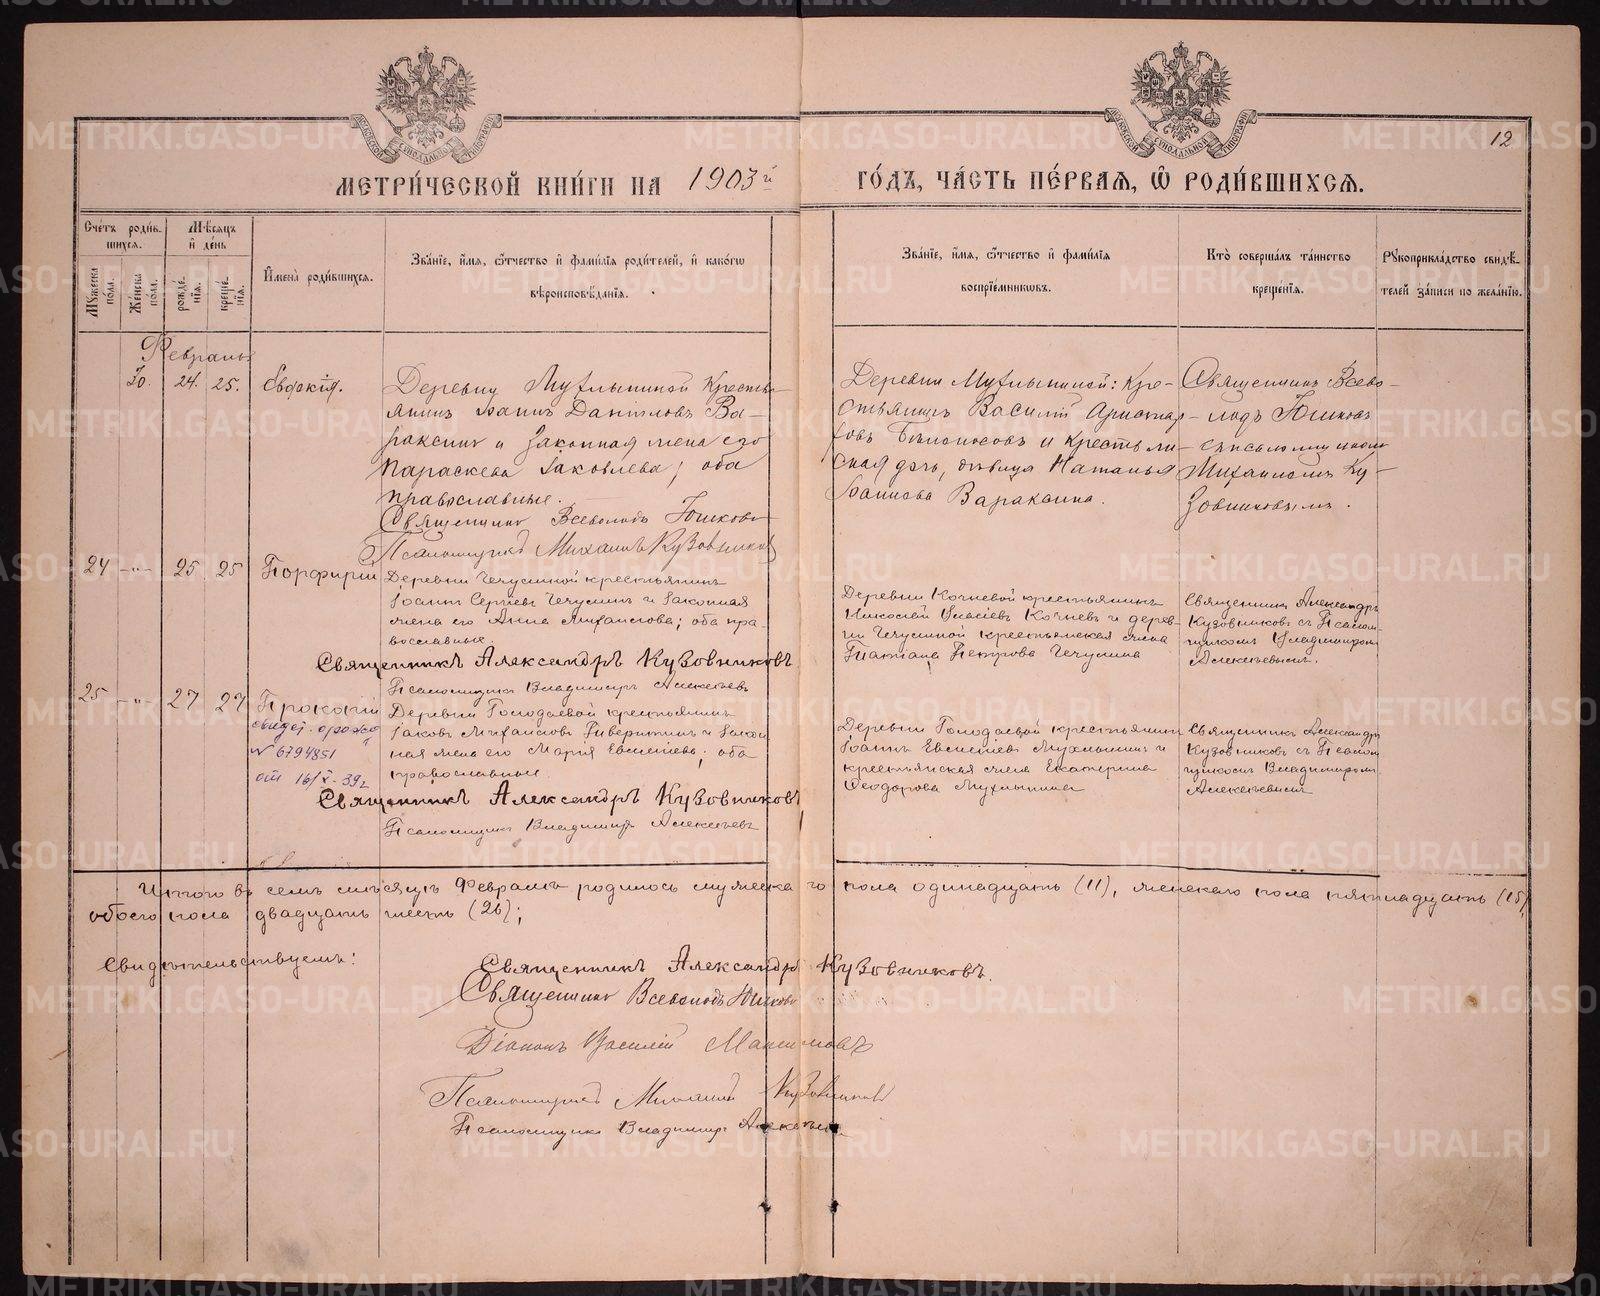 12
МЕТРИ́ЧЕСКОЙ КНИ́ГИ НА 1903й ГО́ДЪ, ЧА́СТЬ ПЕ́РВАЯ, Ѿ РОДИ́ВШИХСЯ.
Сче́тъ роди́вшихся.
Му́жеска пола.
Же́нска пола.
Мѣ́сяцъ и де́нь
рожде́нія.
креще́нія.
Имена̀ роди́вшихся.
Зва́ніе, и́мя, ѻ҆́тчество и фами́лія роди́телей, и како́гѡ
вѣроисповѣ́данія.
Зва́ніе, и́мя, ѻ҆́тчество и фами́лія
воспріе́мниковъ.
Кто̀ соверша́лъ та́инство
креще́нія.
Рукоприкла́дство свидѣ́-
телей за́писи по жела́нію.
Февраль
24. 25. Евдокія.
Деревни Мухлыниной Крестья-
янинъ Іоаннъ Даніиловъ Ва-
раксинъ и законная жена его
Параскева Іаковлева; оба
православные.
Священникъ Всеволодъ Юшковъ
Псаломщикъ Михаилъ Кузовниковъ
Деревни Мухлыниной: Кре-
стьянинъ Василій Аристар-
ховъ Бѣлоносовъ и крестьян-
ская дочь, дѣвица Наталья
Іоаннова Вараксина.
Священникъ Всево-
лодъ Юшковъ
съ псаломщикомъ
Михаиломъ Ку-
зовниковымъ.
24 —"— 25 25 Порфирій
Деревни Чечулиной крестьянинъ
Іоаннъ Сергіевъ Чечулинъ и законная
жена его Анна Михаилова; оба пра-
вославные.
Священникъ Александръ Кузовниковъ
Псаломщикъ Владимиръ Алексѣевъ
Деревни Кочневой крестьянинъ
Николай Власіевъ Кочневъ и дерев-
ни Чечулиной крестьянская жена
Татіана Петрова Чечулина
Священникъ Александръ
Кузовниковъ съ Псалом-
щикомъ Владимиромъ
Алексѣевымъ.
25 —"— 27 27 Прокопій
свидет. о рожд
№ 6794851
от 16/X-39г
Деревни Голодаевой крестьянинъ
Іаковъ Михаиловъ и закон
ная жена его Марія Евсевіева; оба
православные
Священникъ Александръ Кузовниковъ
Псаломщикъ Владимиръ Алексѣевъ
Деревни Голодаевой крестьянинъ
Іоаннъ Евсевіевъ Мухлынинъ и
крестьянская жена Екатерина
Ѳеодорова Мухлынина
Священникъ Александръ
Кузовниковъ съ Псалом
щикомъ Владимиромъ
Алексѣевымъ
Итого въ семъ мѣсяцѣ Февралѣ родилось мужеска го пола одинадцать (11), женскаго пола пятнадцать (15),
обоего пола двадцать шесть (26);
Свидѣтельствуемъ:
Священникъ Александръ Кузовниковъ.
Священникъ Всеволодъ Юшковъ
Діаконъ Василій Максимовъ
Псаломщикъ Михаилъ Кузовниковъ
Псаломщикъ Владимиръ Алексѣевъ
METRIKI.GASO-URAL.RU